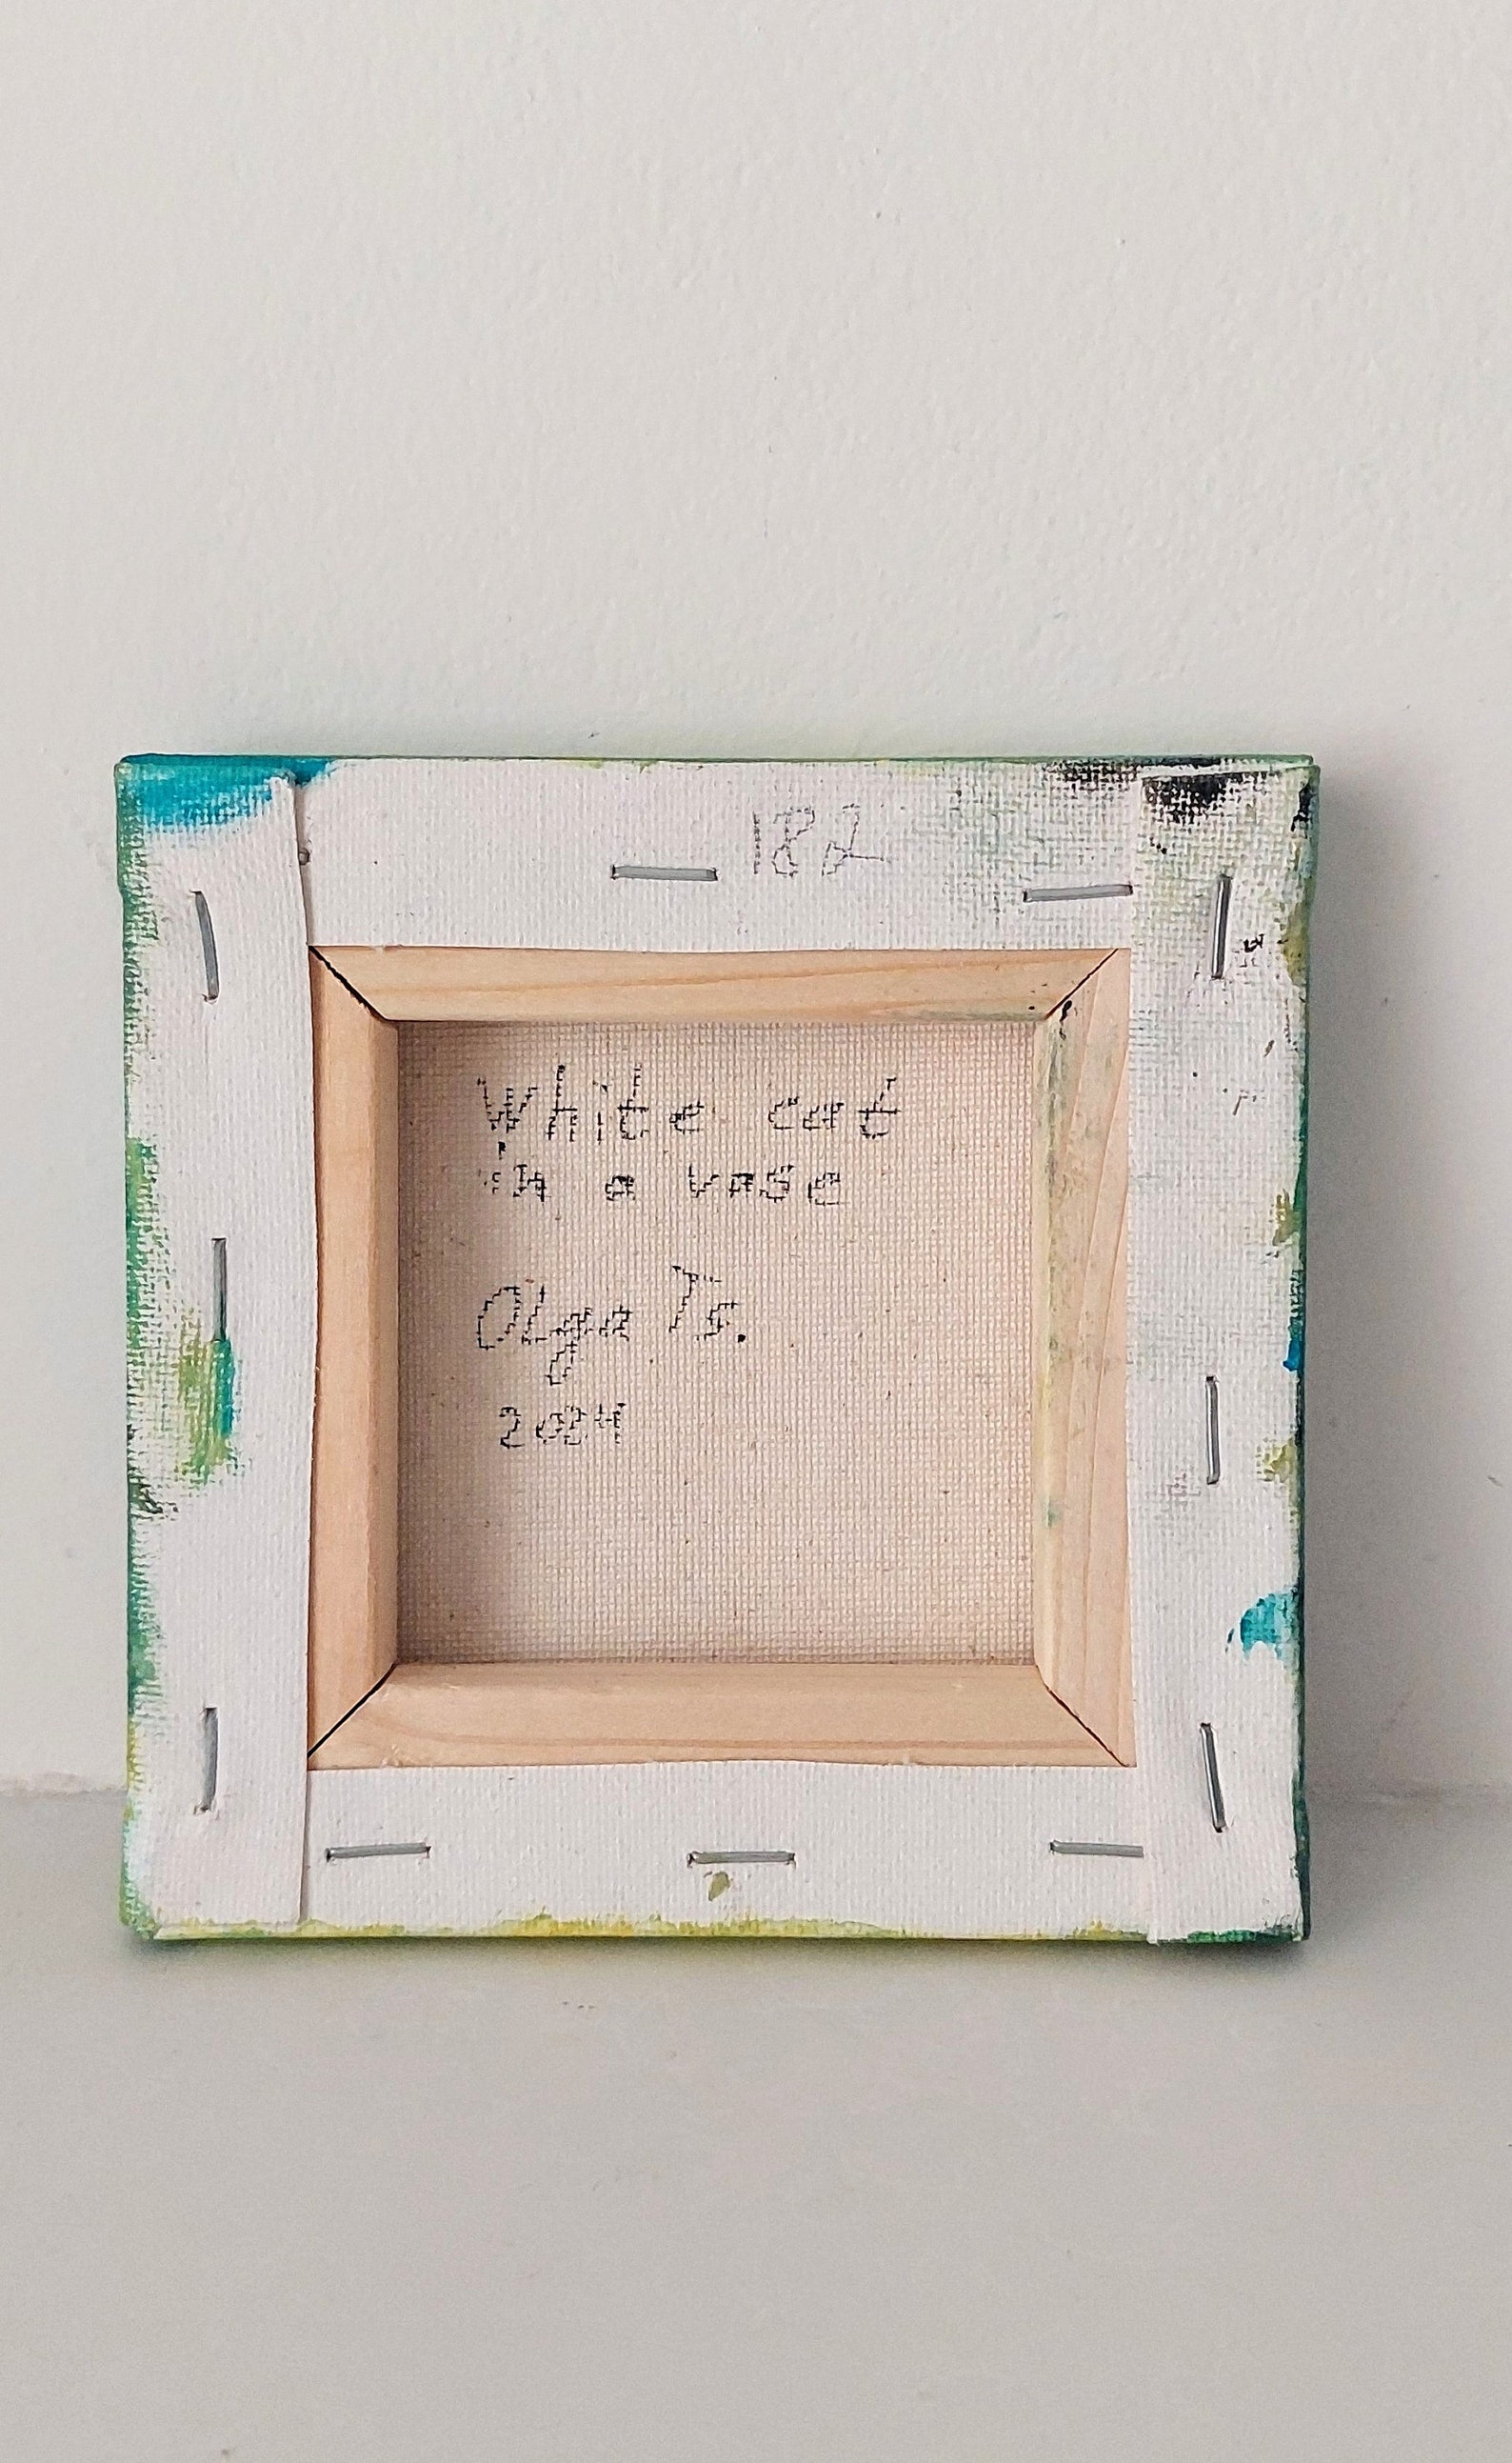 182
White cat
in a vase
Olga Ts.
2024